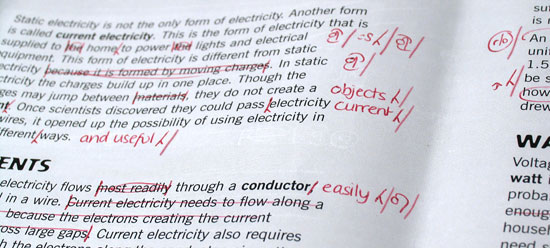 Static electricity is not the only form of electricity. Another form
is called current electricity. This is the form of electricity that is
supplied to home to power lights and electrical
quipment. This form of electricity is different from static
ctricity because it is formed by moving charges. In static
ctricity the charges build up in one place. Though the
ges may jump between materials, they do not create a objects
nt. Once scientists discovered they could pass electricity current
wires, it opened up the possibility of using electricity in
fferent ways. and useful
ENTS
electricity flows most readily through a conductor, easily
d in a wire. Current electricity needs to flow along a
because the electrons creating the current
oss large gaps. Current electricity also requires
h the electrons along the
su
is
An
uni
1.5
be s
how
drew
WA
Volta
watt
proba
enoug
househ
need